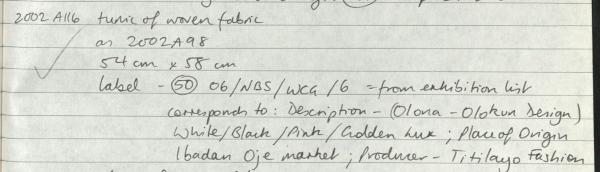 2002 A116 tunic of woven fabric
as 2002A98
54 cm x 58 cm
label - 50 06/NBS/WCG/6 = from exhibition list
corresponds to: Description - (Olona - Olokun Design)
White/Black/Pink/Golden Lux; Place of Origin
Ibadan Oje market; Producer - Titilayo Fashion